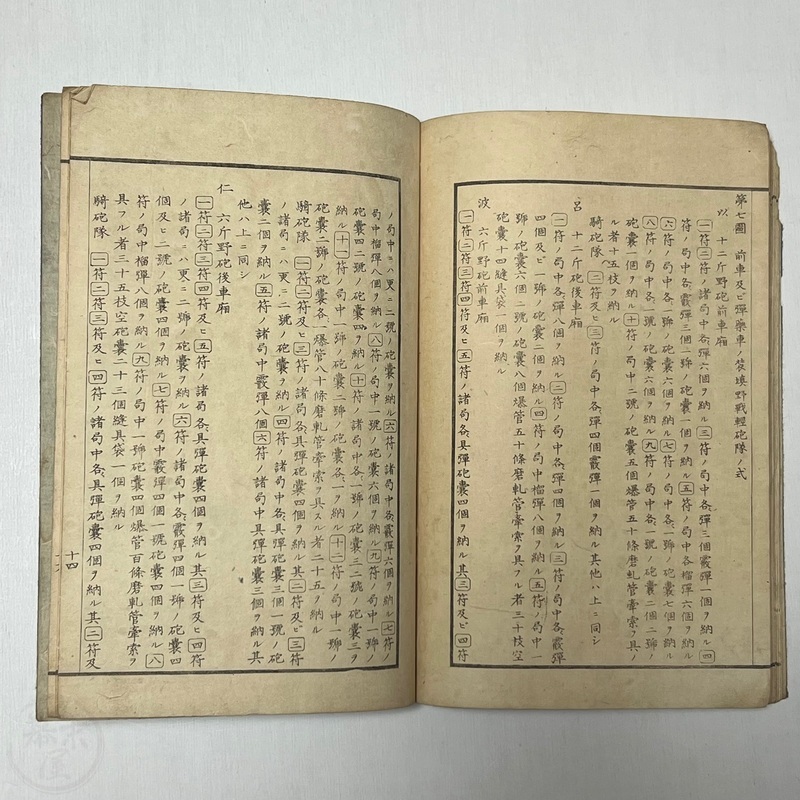 第七圖 前車及ビ彈藥車ノ裝填野戰輕砲隊ノ式
以 十二斤野砲前車廂
一符二符ノ諸局中各彈六個ヲ納ル三符ノ局中各彈三個霰彈一個ヲ納ル四
符ノ局中各霰彈三個一號ノ砲囊一個ヲ納ル五符ノ局中各榴彈六個ヲ納ル
六符ノ局中各一號ノ砲囊六個ヲ納ル七符ノ局中各一號ノ砲囊七個ヲ納ル
八符ノ局中各一號ノ砲囊六個ヲ納ル九符ノ局中各一號ノ砲囊二個二號ノ
砲囊一個ヲ納ル十符ノ局中二號ノ砲囊五個爆管五十條磨軋管牽索ヲ具ノ
ル者十五枝ヲ納ル
騎砲隊 二符及ヒ三符ノ局中各彈四個霰彈一個ヲ納ル其他ハ上ニ同シ
呂 十二斤砲後車廂
一符ノ局中各彈六個ヲ納ル二符ノ局中各彈四個ヲ納ル三符ノ局中各霰彈
四個及ビ一號ノ砲囊二個ヲ納ル四符ノ局中榴彈八個ヲ納ル五符ノ局中一
號ノ砲囊六個二號ノ砲囊八個爆管五十條磨軋管牽索ヲ具フル者三十枝空
砲囊十四縫具袋一個ヲ納ル
波 六斤野砲前車廂
一符二符三符四符及ヒ五符ノ諸局各具彈砲囊四個ヲ納ル其三符及ヒ四符
ノ局中ニハ更ニ二號ノ砲囊ヲ納ル六符ノ諸局中各霰彈六個ヲ納ル七符ノ
局中榴彈八個ヲ納ル八符ノ局中一號ノ砲囊六個ヲ納ル九符ノ局中一號ノ
砲囊四二號ノ砲囊二個ヲ納ル十符ノ諸局中各一號ノ砲囊三二號ノ砲囊三ヲ
納ル十一符ノ局中一號ノ砲囊二號ノ砲囊各一ヲ納ル十二符ノ局中一號ノ
砲囊二號ノ砲囊各一爆管八十條磨軋管牽索ヲ具スル者二十五ヲ納ル
騎砲隊 一符二符及ヒ三符ノ諸局中各具彈砲囊四個ヲ納ル其二符及ヒ三符
ノ諸局ニハ更ニ二號ノ砲囊ヲ納ル四符ノ諸局中各具彈砲囊三個一號ノ砲
囊二個ヲ納ル五符ノ諸局中霰彈八個六符ノ諸局中具彈砲囊三個ヲ納ル其
他ハ上ニ同シ
仁 六斤野砲後車廂
一符二符三符四符及ヒ五符ノ諸局各具彈砲囊四個ヲ納ル其三符及ヒ四符
ノ諸局ニハ更ニ二號ノ砲囊ヲ納ル六符ノ諸局中各霰彈四個一號ノ砲囊四
個及ヒ二號ノ砲囊四個ヲ納ル七符ノ局中霰彈四個一號砲囊四個ヲ納ル八
符ノ局中榴彈八個ヲ納ル九符ノ局中一號砲囊四個爆管百條磨軋管牽索ヲ
具フル者三十五枝空砲囊二十三個縫具袋一個ヲ納ル
騎砲隊 一符二符三符及ヒ四符ノ諸局中各具彈砲囊四個ヲ納ル其二符及
十四